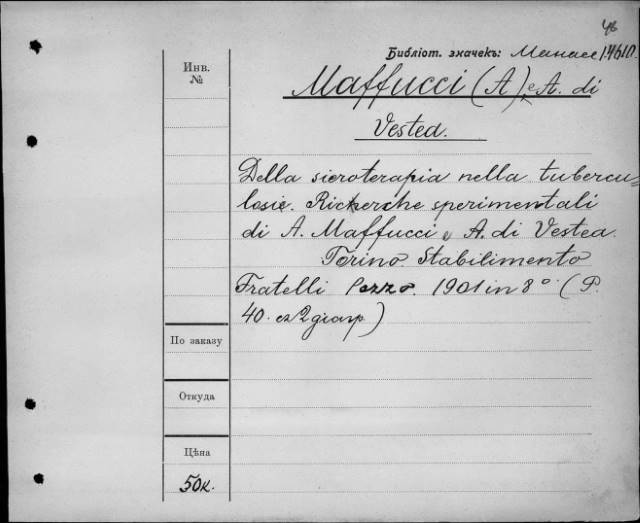 46
Библіот. значекъ: Манасс 14610.
Инв.
№
Maffucci (A) e A. di
Vestea.
Della sieroterapia nella tubercu-
losie. Richerche sperimentali
di A. Maffucci e A. di Vestea.
Torino. Stabilimento
Fratelli Pozzo. 1901 in 8° (P.
40. cz 2 diagr)
По заказу
Откуда
Цѣна
50к.